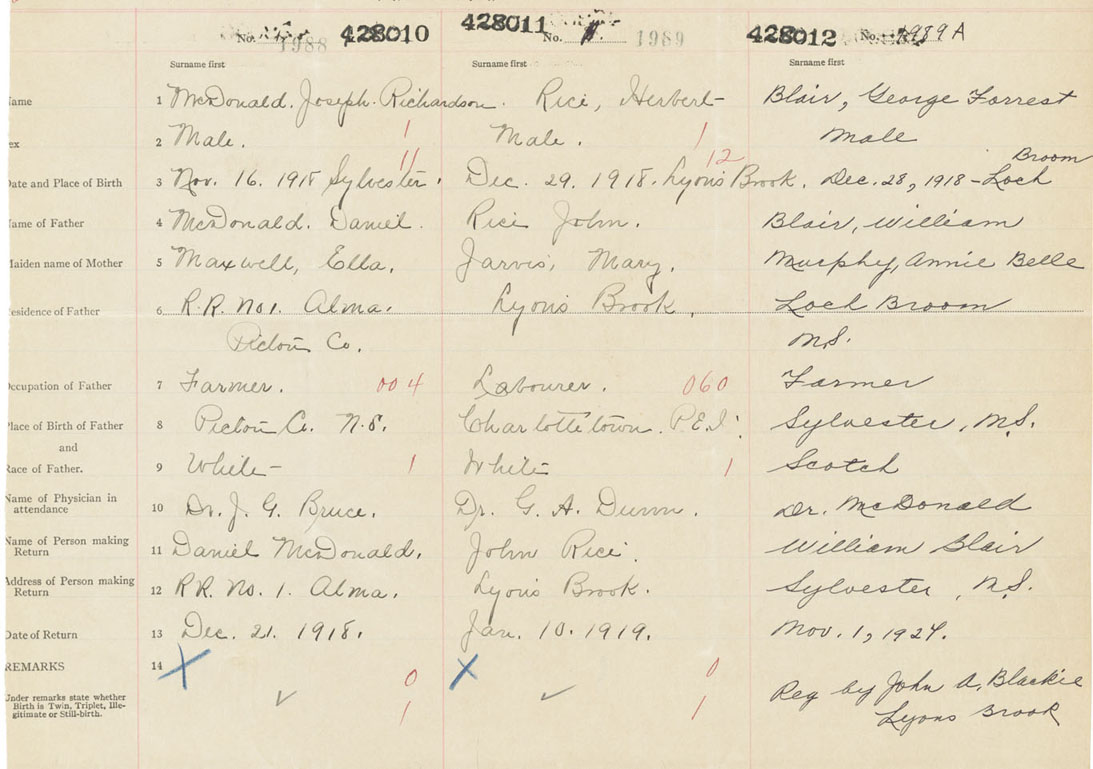 No. 1988 428010 428011 No. 1989 428012 No. 1989 A
Surname first Surname first Surname first
ame 1 McDonald. Joseph Richardson. Rice, Herbert Blair, George Forrest
ex 2 Male. 1 Male. 1 Male
11 12 Broom
Date and Place of Birth 3 Nov. 16. 1918 Sylvester. Dec. 29. 1918. Lyons Brook. Dec. 28, 1918 - Loch
ame of Father 4 McDonald. Daniel. Rice John. Blair, William
aiden name of Mother 5 Maxwell, Ella. Jarvis, Mary. Murphy, Annie Belle
esidence of Father 6 R.R. No 1. Alma. Lyons Brook. Loch Broom
Pictou Co. N.S.
ccupation of Father 7 Farmer. 004 Labourer. 060 Farmer
Place of Birth of Father 8 Pictou Co. N.S. Charlottetown. P.E.I. Sylvester, N.S.
and
Race of Father. 9 White 1 White 1 Scotch
Name of Physician in
attendance 10 Dr. J. G. Bruce. Dr. G. A. Dunn. Dr. McDonald
Name of Person making
Return 11 Daniel McDonald. John Rice. William Blair
Address of Person making
Return 12 R.R. No. 1. Alma. Lyons Brook. Sylvester, N.S.
Date of Return 13 Dec. 21. 1918. Jan. 10. 1919. Nov. 1, 1927.
REMARKS 14 X 0 X 0
Reg by John A. Blackie
Under remarks state whether
Birth is Twin, Triplet, Ille-
gitimate or Still-birth. ✓ 1 ✓ 1 Lyons Brook